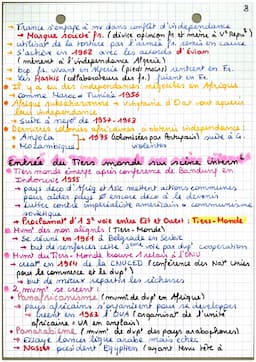 8
France s'engage de me dans conflit d'indépendance
→ Masque rouche fr. (divise opinion fr et même à Vᵉ Répu)
→ utilisat° de la torture par l'armée fr. remis en cause
s'achève en 1962 avec les accords d'Évian
(mènent à l'indépendance Algérie)
→ bcp fr. vivant en Algérie (pieds noirs) rentrent en Fr.
→ les Harkis (collaborateurs des fr.) fuient en Fr.
Il y a eu des indépendances négociées en Afrique
→ comme Maroc et Tunisie 1956
Afrique subsaharienne → vingtaine d'États vont acquérir
leur indépendance
→ suite à négo° de 1957-1963
Dernières colonies africaines à obtenir indépendance :
→ Angola
→ Mozambique
→ 1975 (colonisées par Portugais) suite à G.
violentes
Entrée du Tiers monde sur scène intern°
Tiers monde émerge après conférence de Bandung en
Indonésie 1955
→ pays déco d'Afriq et Asie mettent actions communes
pour aider pays encore déco à le devenir
→ lutter contre impérialisme américain + communisme
soviétique
→ Proclamat° d'1 3ᵉ voie entre Est et Ouest : Tiers-Monde
Mvm° des non alignés (Tiers-Monde)
→ Se réunit en 1961 à Belgrade en Serbie
→ but de renforcer cette 3ème voie par dvp° coopération
Mvm° du Tiers-Monde trouve 1 relais à l'ONU
→ créat° en 1964 de la CNUCED (conférence des Nat° Unies
pour le commerce et le dvp°)
→ but de mieux répartir les richesses
2 mvm° se créent :
Panafricanisme (mvm° de dvp° en Afrique)
→ pays africains s'organisent pour se développer
→ créent en 1963 l'OUA (organisat° de l'unité
africaine → UA en anglais)
Panarabisme (mvm° de dvp° des pays arabophones)
→ Essaye lancer ligue arabe mais échec
→ Nasser président Égyptien (ayant tenu tête à